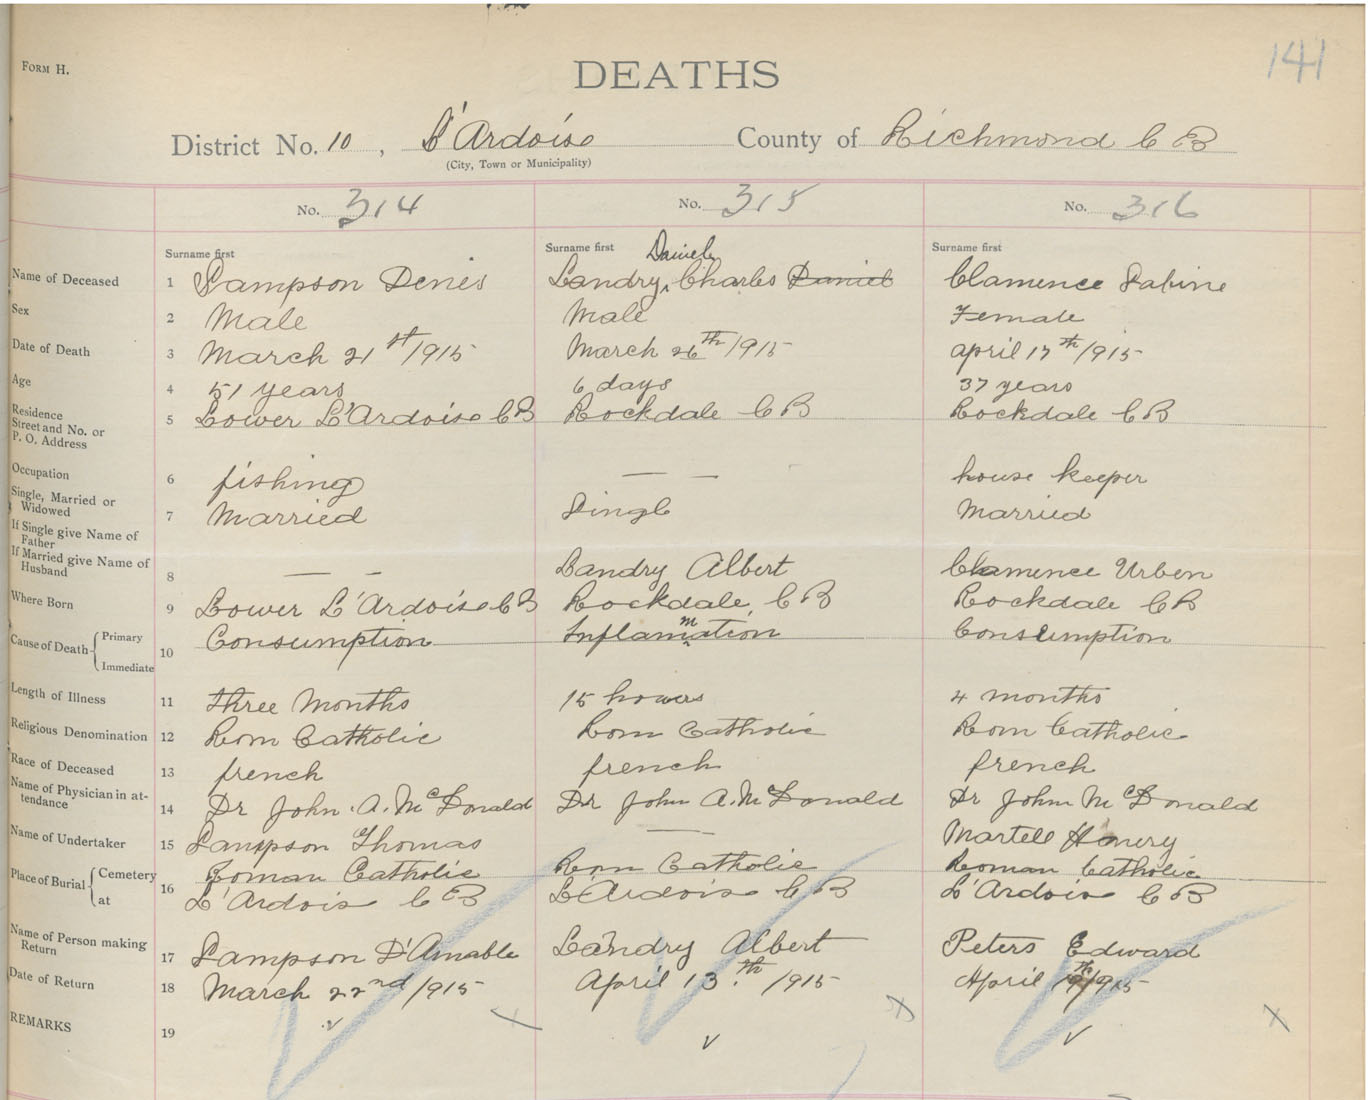 141
FORM H.
DEATHS
District No. 10, L'Ardoise County of Richmond C B
(City, Town or Municipality)
No. 314 No. 315 No. 316
Surname first Surname first Surname first
Daniel
Name of Deceased 1 Sampson Denis Landry, Charles Daniel Clamence Sabine
Sex 2 Male Male Female
Date of Death 3 March 21st/1915 March 26th/1915 april 17th/1915
Age 4 51 years 6 days 37 years
Residence Street and No. or P. O. Address 5 Lower L'Ardoise C B Rockdale C B Rockdale C B
Occupation 6 fishing — — house keeper
Single, Married or Widowed 7 Married Single Married
If Single give Name of Father
If Married give Name of Husband 8 — - Landry Albert Clamence Urben
Where Born 9 Lower L'Ardoise C B Rockdale, C B Rockdale C B
Cause of Death Primary Immediate 10 Consumption Inflammation Consumption
Length of Illness 11 three Months 15 howers 4 months
Religious Denomination 12 Rom Catholic Rom Catholic Rom Catholic
Race of Deceased 13 french french french
Name of Physician in attendance 14 Dr John A. McDonald Dr John A. McDonald Dr John McDonald
Name of Undertaker 15 Sampson Thomas — Martell Henery
Place of Burial Cemetery at 16 Roman Catholic Rom Catholic Roman Catholic
L'Ardois C B L'Ardois C B L'Ardois C B
Name of Person making Return 17 Sampson D'Amable Landry Albert Peters Edward
Date of Return 18 March 22nd/1915 April 13th/1915 April 1915
REMARKS 19